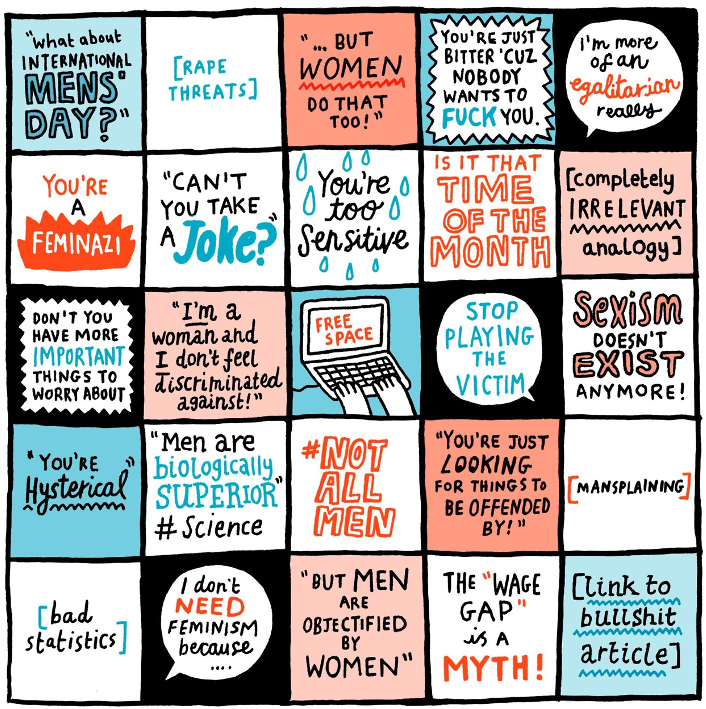 "What about
INTERNATIONAL
MENS'
DAY?"
[RAPE
THREATS]
"... BUT
WOMEN
DO THAT
TOO!"
YOU'RE JUST
BITTER 'CUZ
NOBODY
WANTS TO
FUCK YOU.
I'm more
of an
egalitarian
really
YOU'RE
A
FEMINAZI
"CAN'T
YOU TAKE
A Joke?"
You're
too
Sensitive
IS IT THAT
TIME
OF THE
MONTH
[completely
IRRELEVANT
analogy]
DON'T YOU
HAVE MORE
IMPORTANT
THINGS TO
WORRY ABOUT
"I'm a
woman and
I don't feel
discriminated
against!"
FREE
SPACE
STOP
PLAYING
THE
VICTIM
SEXiSM
DOESN'T
EXIST
ANYMORE!
"YOU'RE
Hysterical"
"Men are
biologically
SUPERIOR"
# Science
#NOT
ALL
MEN
"YOU'RE JUST
LOOKING
FOR THINGS TO
BE OFFENDED
BY!"
[MANSPLAINING]
[bad
statistics]
I don't
NEED
FEMINISM
because
....
"BUT MEN
ARE
OBJECTIFIED
BY
WOMEN"
THE "WAGE
GAP"
is a
MYTH!
[link to
bullshit
article]